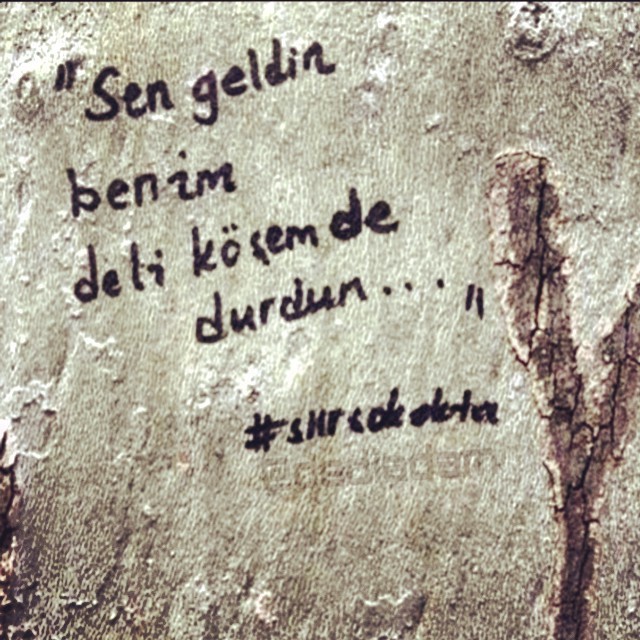 "Sen geldin
benim
deli köşemde
durdun..."
#siirsokakta